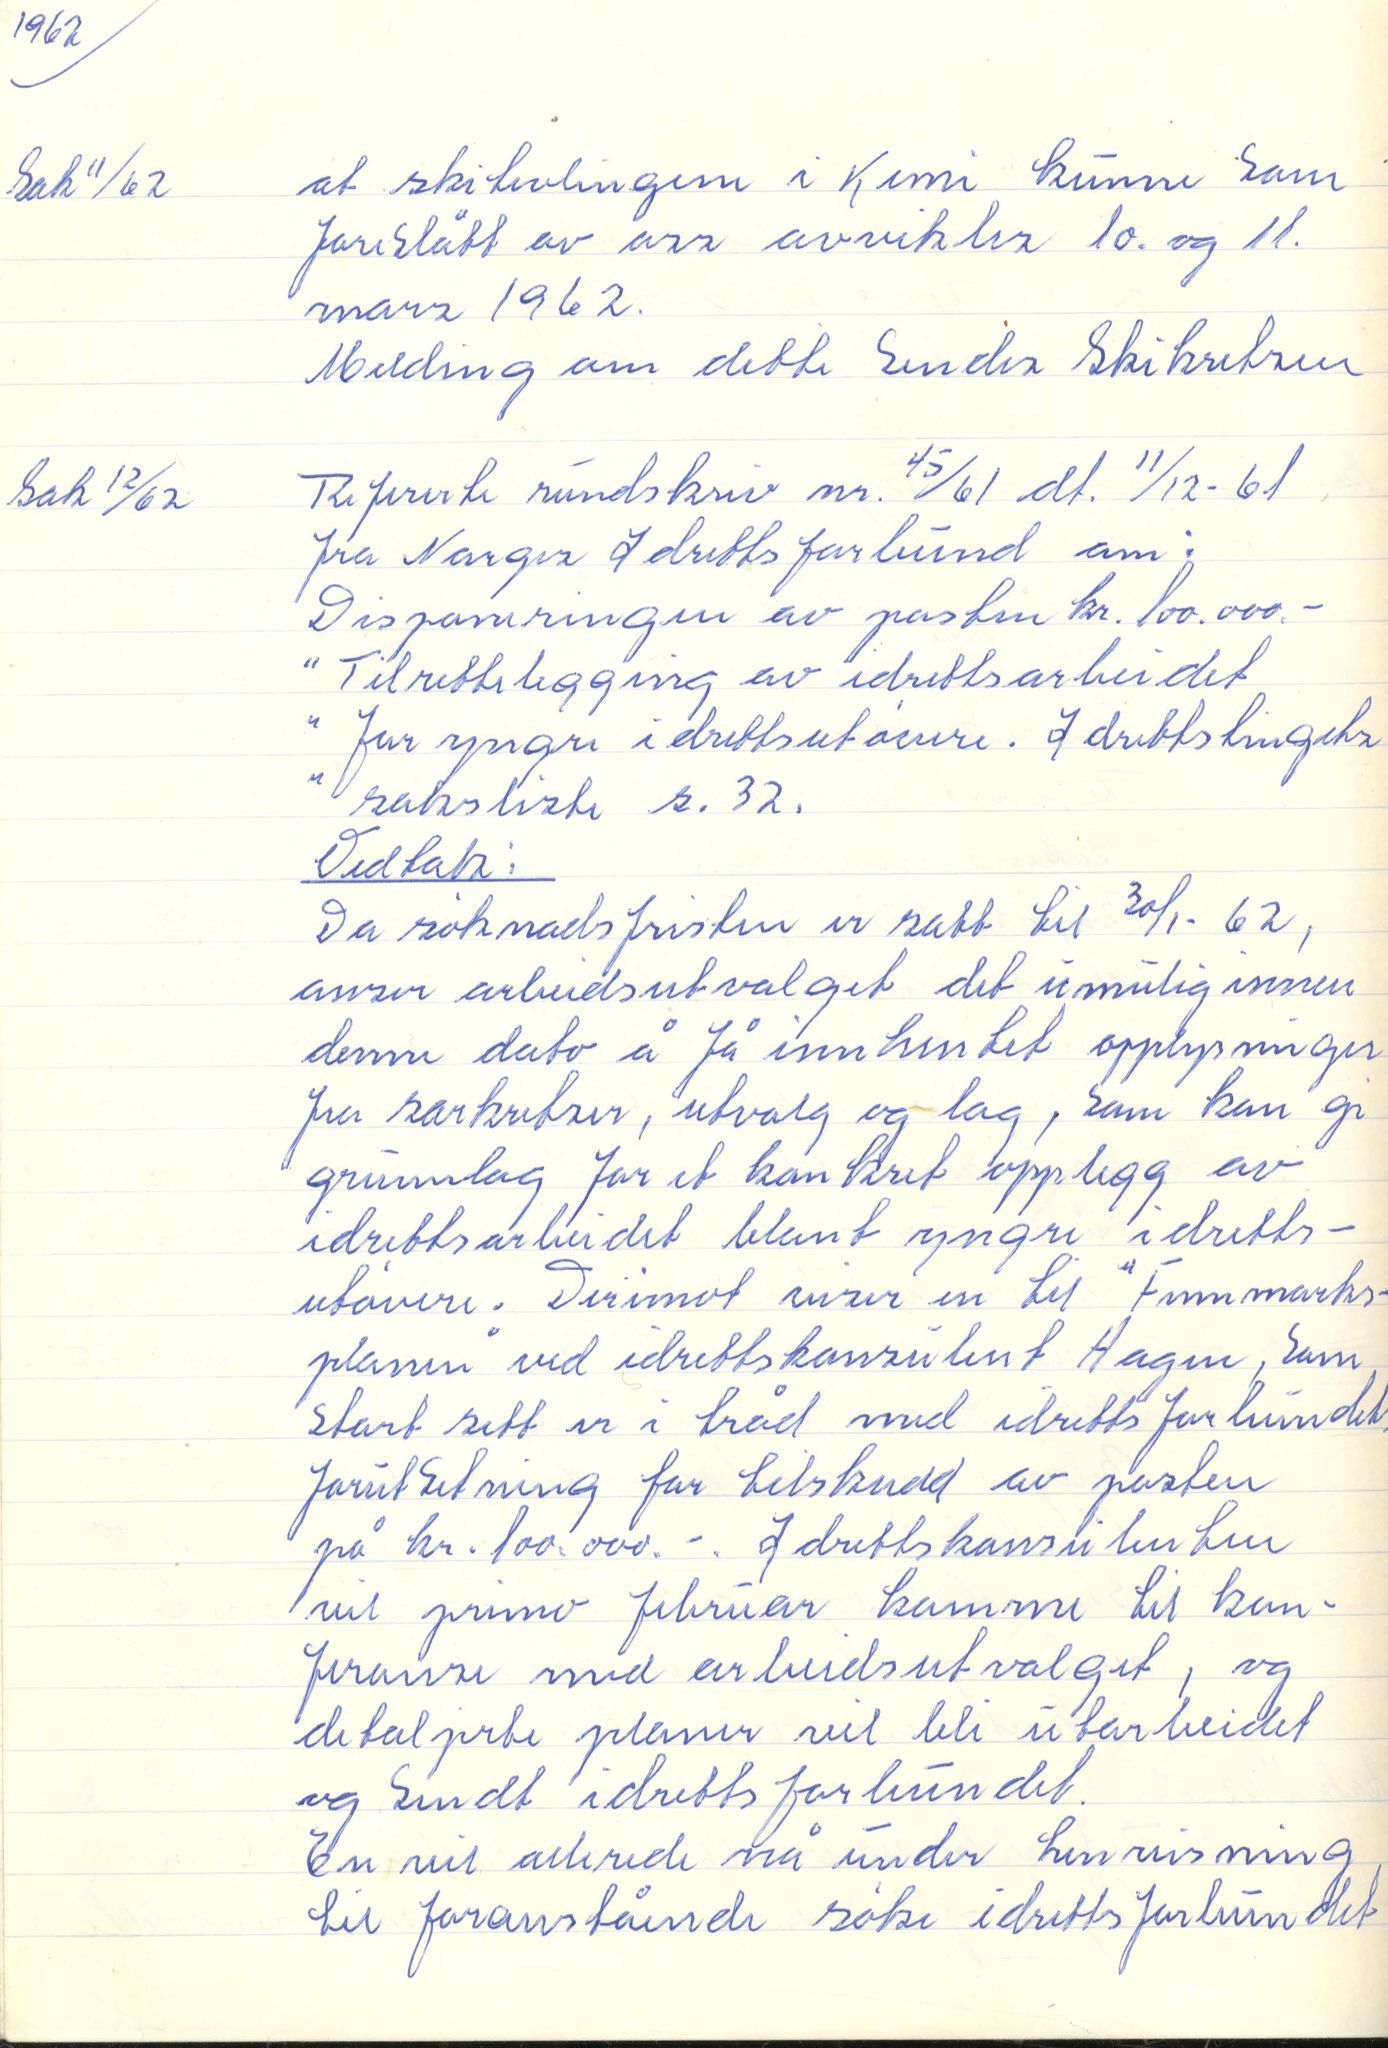 1962
Sak 11/62 at skitevlingene i Kemi kunne som
foreslått av oss avvikles 10. og 11.
mars 1962.
Melding om dette sendes Skikretsen
Sak 12/62 Refererte rundskriv nr. 45/61 dt. 11/12-61
fra Norges Idrettsforbund om:
Disponeringen av posten kr. 100.000.-
" Tilrettelegging av idrettsarbeidet
" for yngre idrettsutøvere. Idrettstingets
" saksliste s. 32.
Vedtak:
Da søknadsfristen er satt til 20/1-62,
anser arbeidsutvalget det umulig innen
denne dato å få innhentet opplysninger
fra særkretser, utvalg og lag, som kan gi
grunnlag for et konkret opplegg av
idrettsarbeidet blant yngre idretts-
utøvere. Derimot viser en til "Finnmarks-
planen" ved idrettskonsulent Hagen, som
stort sett er i tråd med idrettsforbundets
forutsetning for tilskudd av posten
på kr. 100.000.-. Idrettskonsulenten
vil primo februar komme til kon-
feranse med arbeidsutvalget, og
detaljerte planer vil bli utarbeidet
og sendt idrettsforbundet.
En vil allerede nå under henvisning
til foranstående søke idrettsforbundet